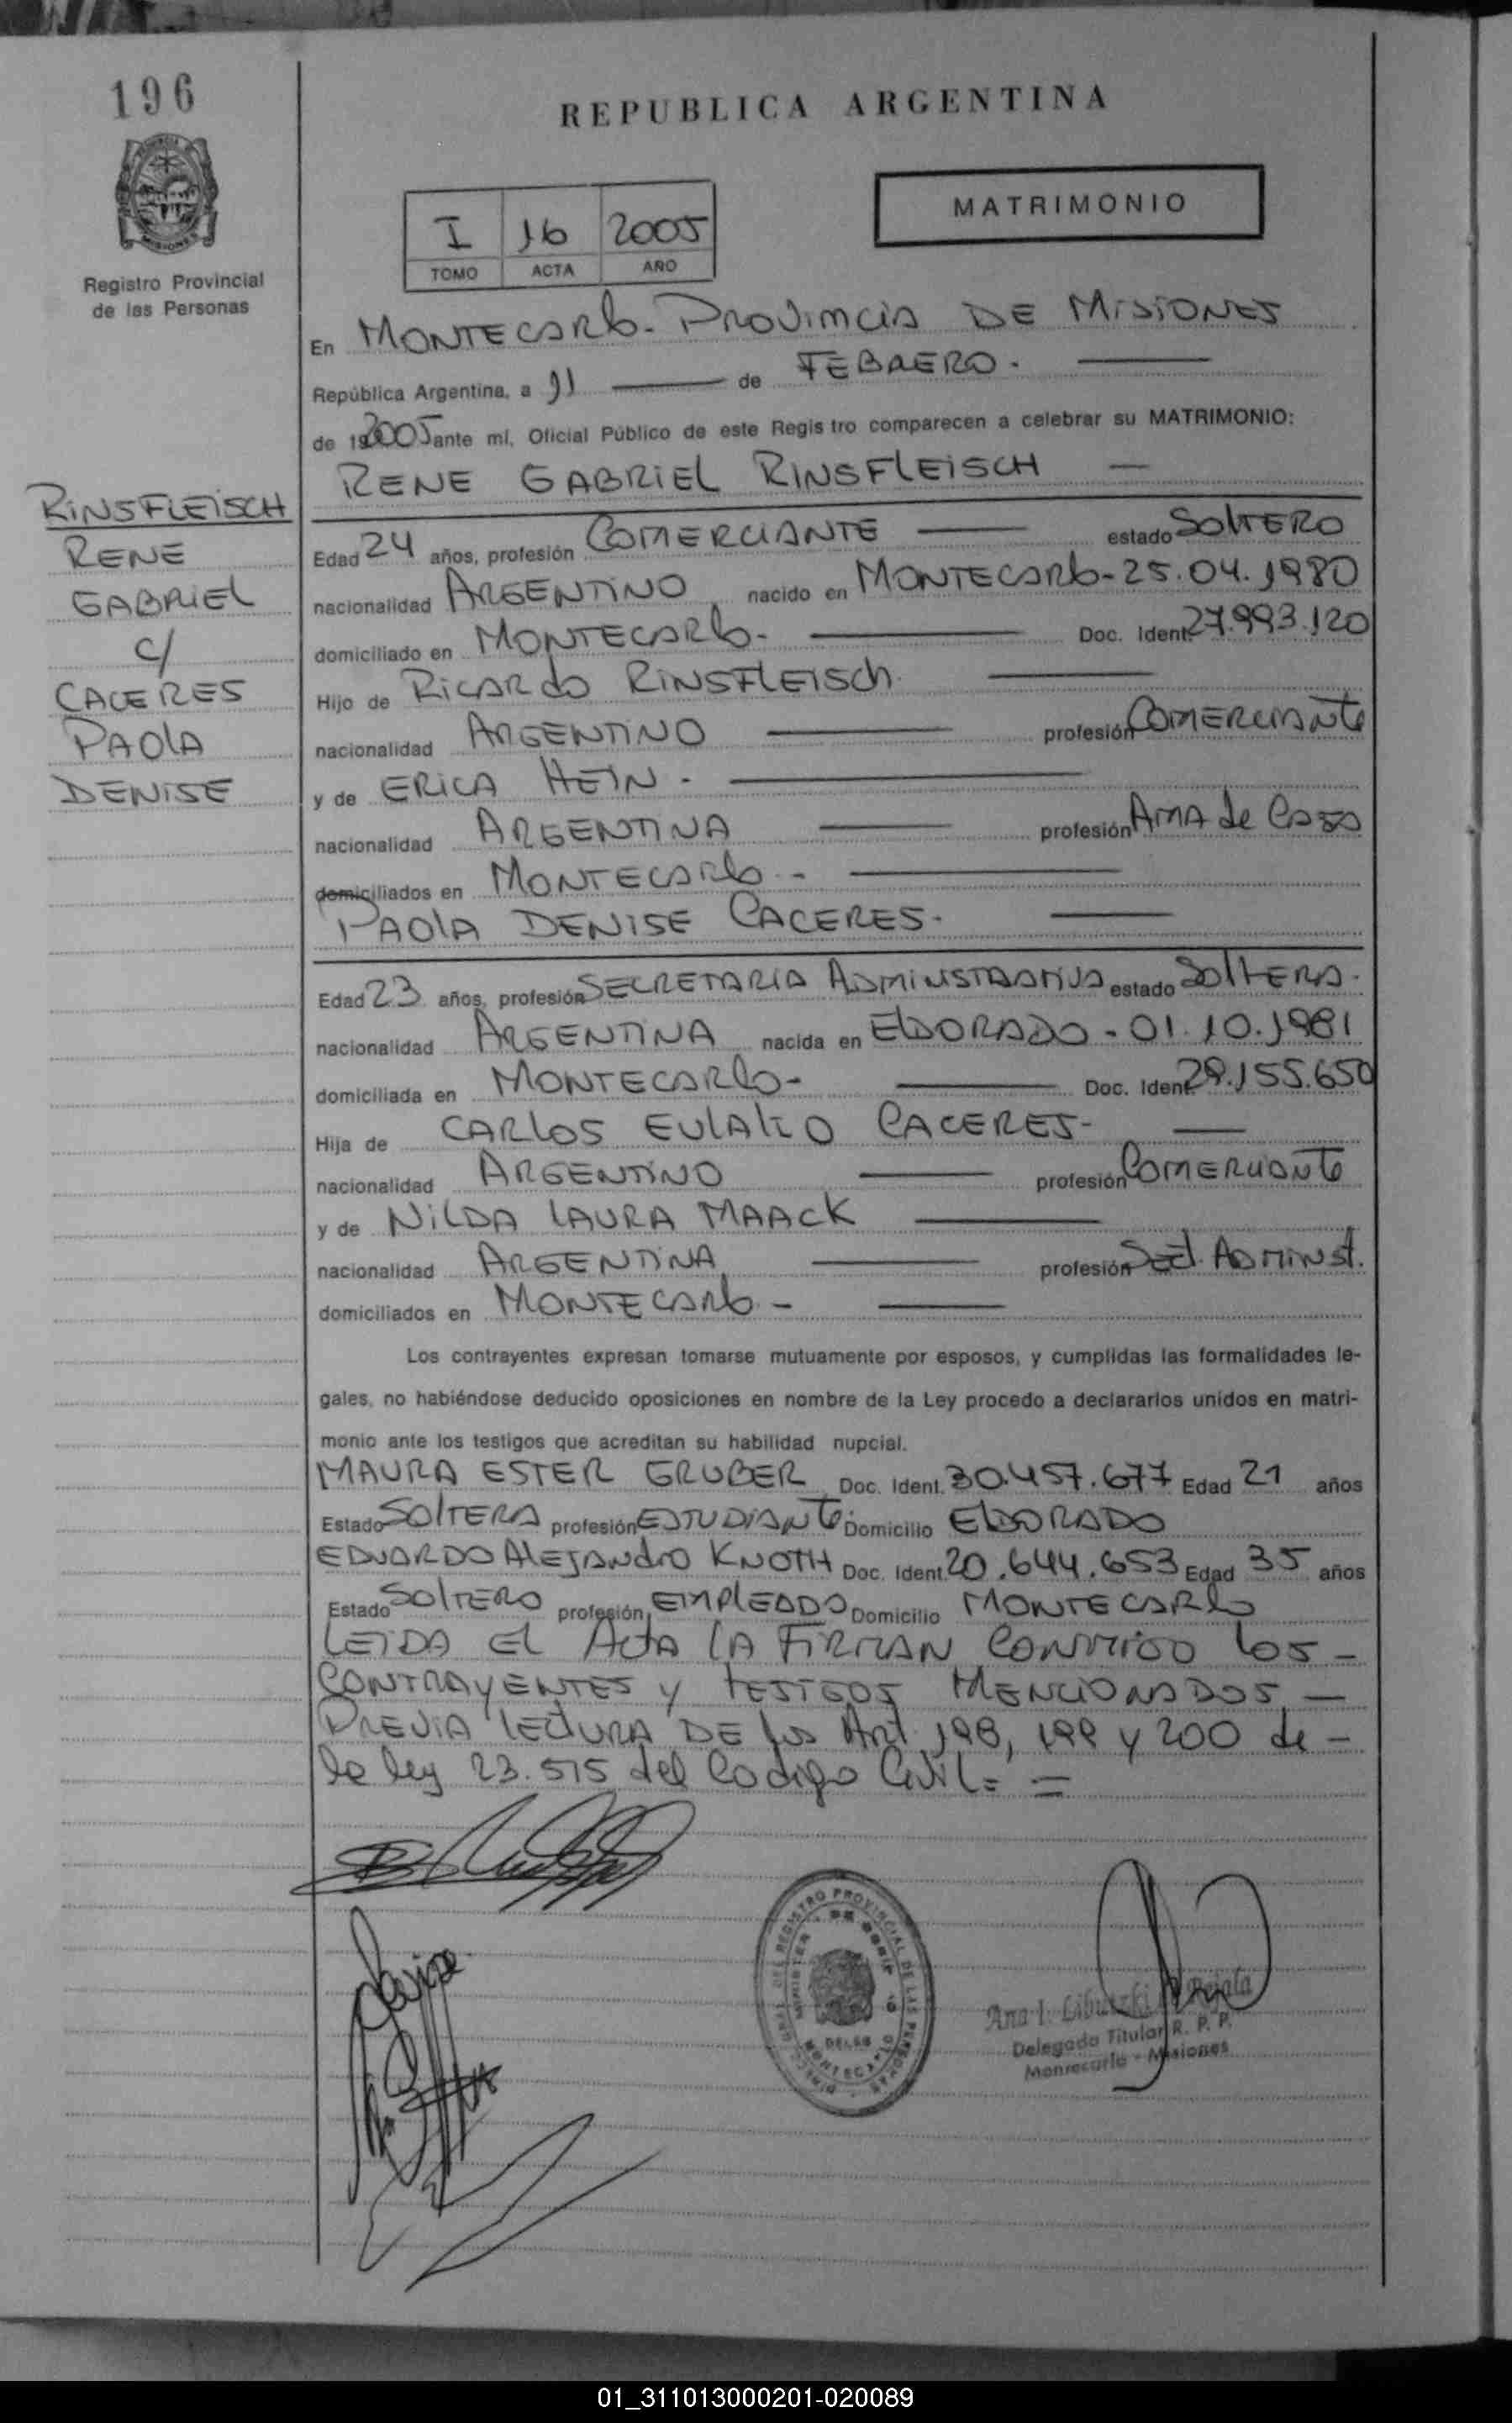 196
REPUBLICA ARGENTINA
MATRIMONIO
I 16 2005
TOMO ACTA AÑO
Registro Provincial
de las Personas
En MONTECARLO - PROVINCIA DE MISIONES
República Argentina, a 11 de FEBRERO.
de 2005 ante mí, Oficial Público de este Registro comparecen a celebrar su MATRIMONIO:
RENE GABRIEL RINSFLEISCH
RINSFLEISCH
RENE
GABRIEL
c/
CACERES
PAOLA
DENISE
Edad 24 años, profesión COMERCIANTE estado SOLTERO
nacionalidad ARGENTINO nacido en MONTECARLO - 25.04.1980
domiciliado en MONTECARLO - Doc. Ident. 27.993.120
Hijo de RICARDO RINSFLEISCH.
nacionalidad ARGENTINO profesión COMERCIANTE
y de ERICA HEIN -
nacionalidad ARGENTINA profesión AMA de CASA
domiciliados en MONTECARLO -
PAOLA DENISE CACERES -
Edad 23 años, profesión SECRETARIA ADMINSTRATIVA estado SOLTERA.
nacionalidad ARGENTINA nacida en ELDORADO - 01.10.1981
domiciliada en MONTECARLO - Doc. Ident. 29.155.650
Hija de CARLOS EULALIO CACERES -
nacionalidad ARGENTINO profesión COMERCIANTE
y de NILDA LAURA MAACK
nacionalidad ARGENTINA profesión ADMINST.
domiciliados en MONTECARLO -
Los contrayentes expresan tomarse mutuamente por esposos, y cumplidas las formalidades le-
gales, no habiéndose deducido oposiciones en nombre de la Ley procedo a declararlos unidos en matri-
monio ante los testigos que acreditan su habilidad nupcial.
MAURA ESTER GRUBER Doc. Ident. 30.457.677 Edad 21 años
Estado SOLTERA profesión ESTUDIANTE Domicilio ELDORADO
EDUARDO ALEJANDRO KNOTH Doc. Ident. 20.644.653 Edad 35 años
Estado SOLTERO profesión EMPLEADO Domicilio MONTECARLO
LEIDA EL ACTA LA FIRMAN CONMIGO LOS -
CONTRAYENTES Y TESTIGOS MENCIONADOS -
PREVIA LECTURA DE los Art 198, 199 y 200 de -
la ley 23.515 del Codigo Civil =
Ana I.
Delegada Titular R. P. P.
Montecarlo - Misiones
01_311013000201-020089